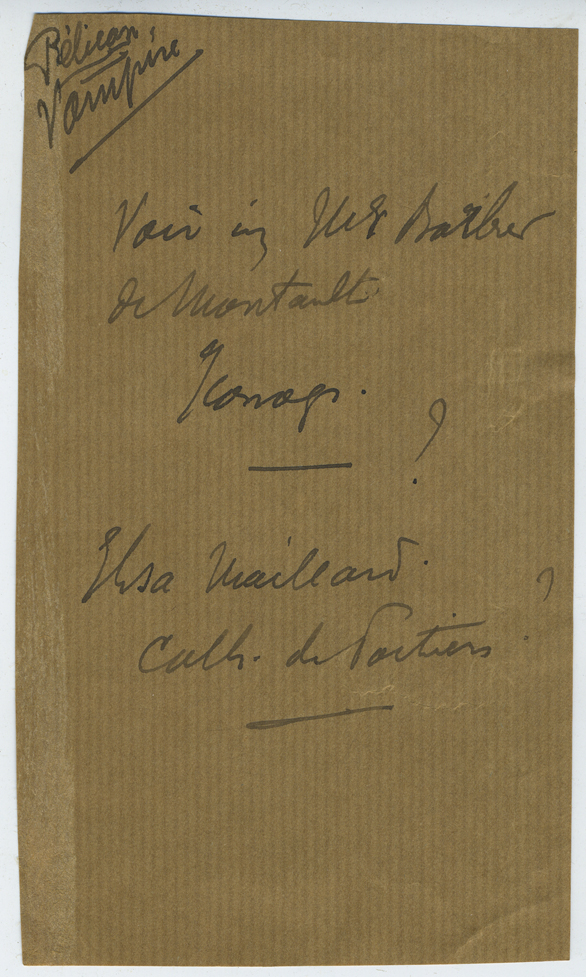 Pélican,
Vampire
Voir in Mgr Barbier
de Montault
Iconogr.
?
Elsa Maillard.
Cath. de Poitiers ?